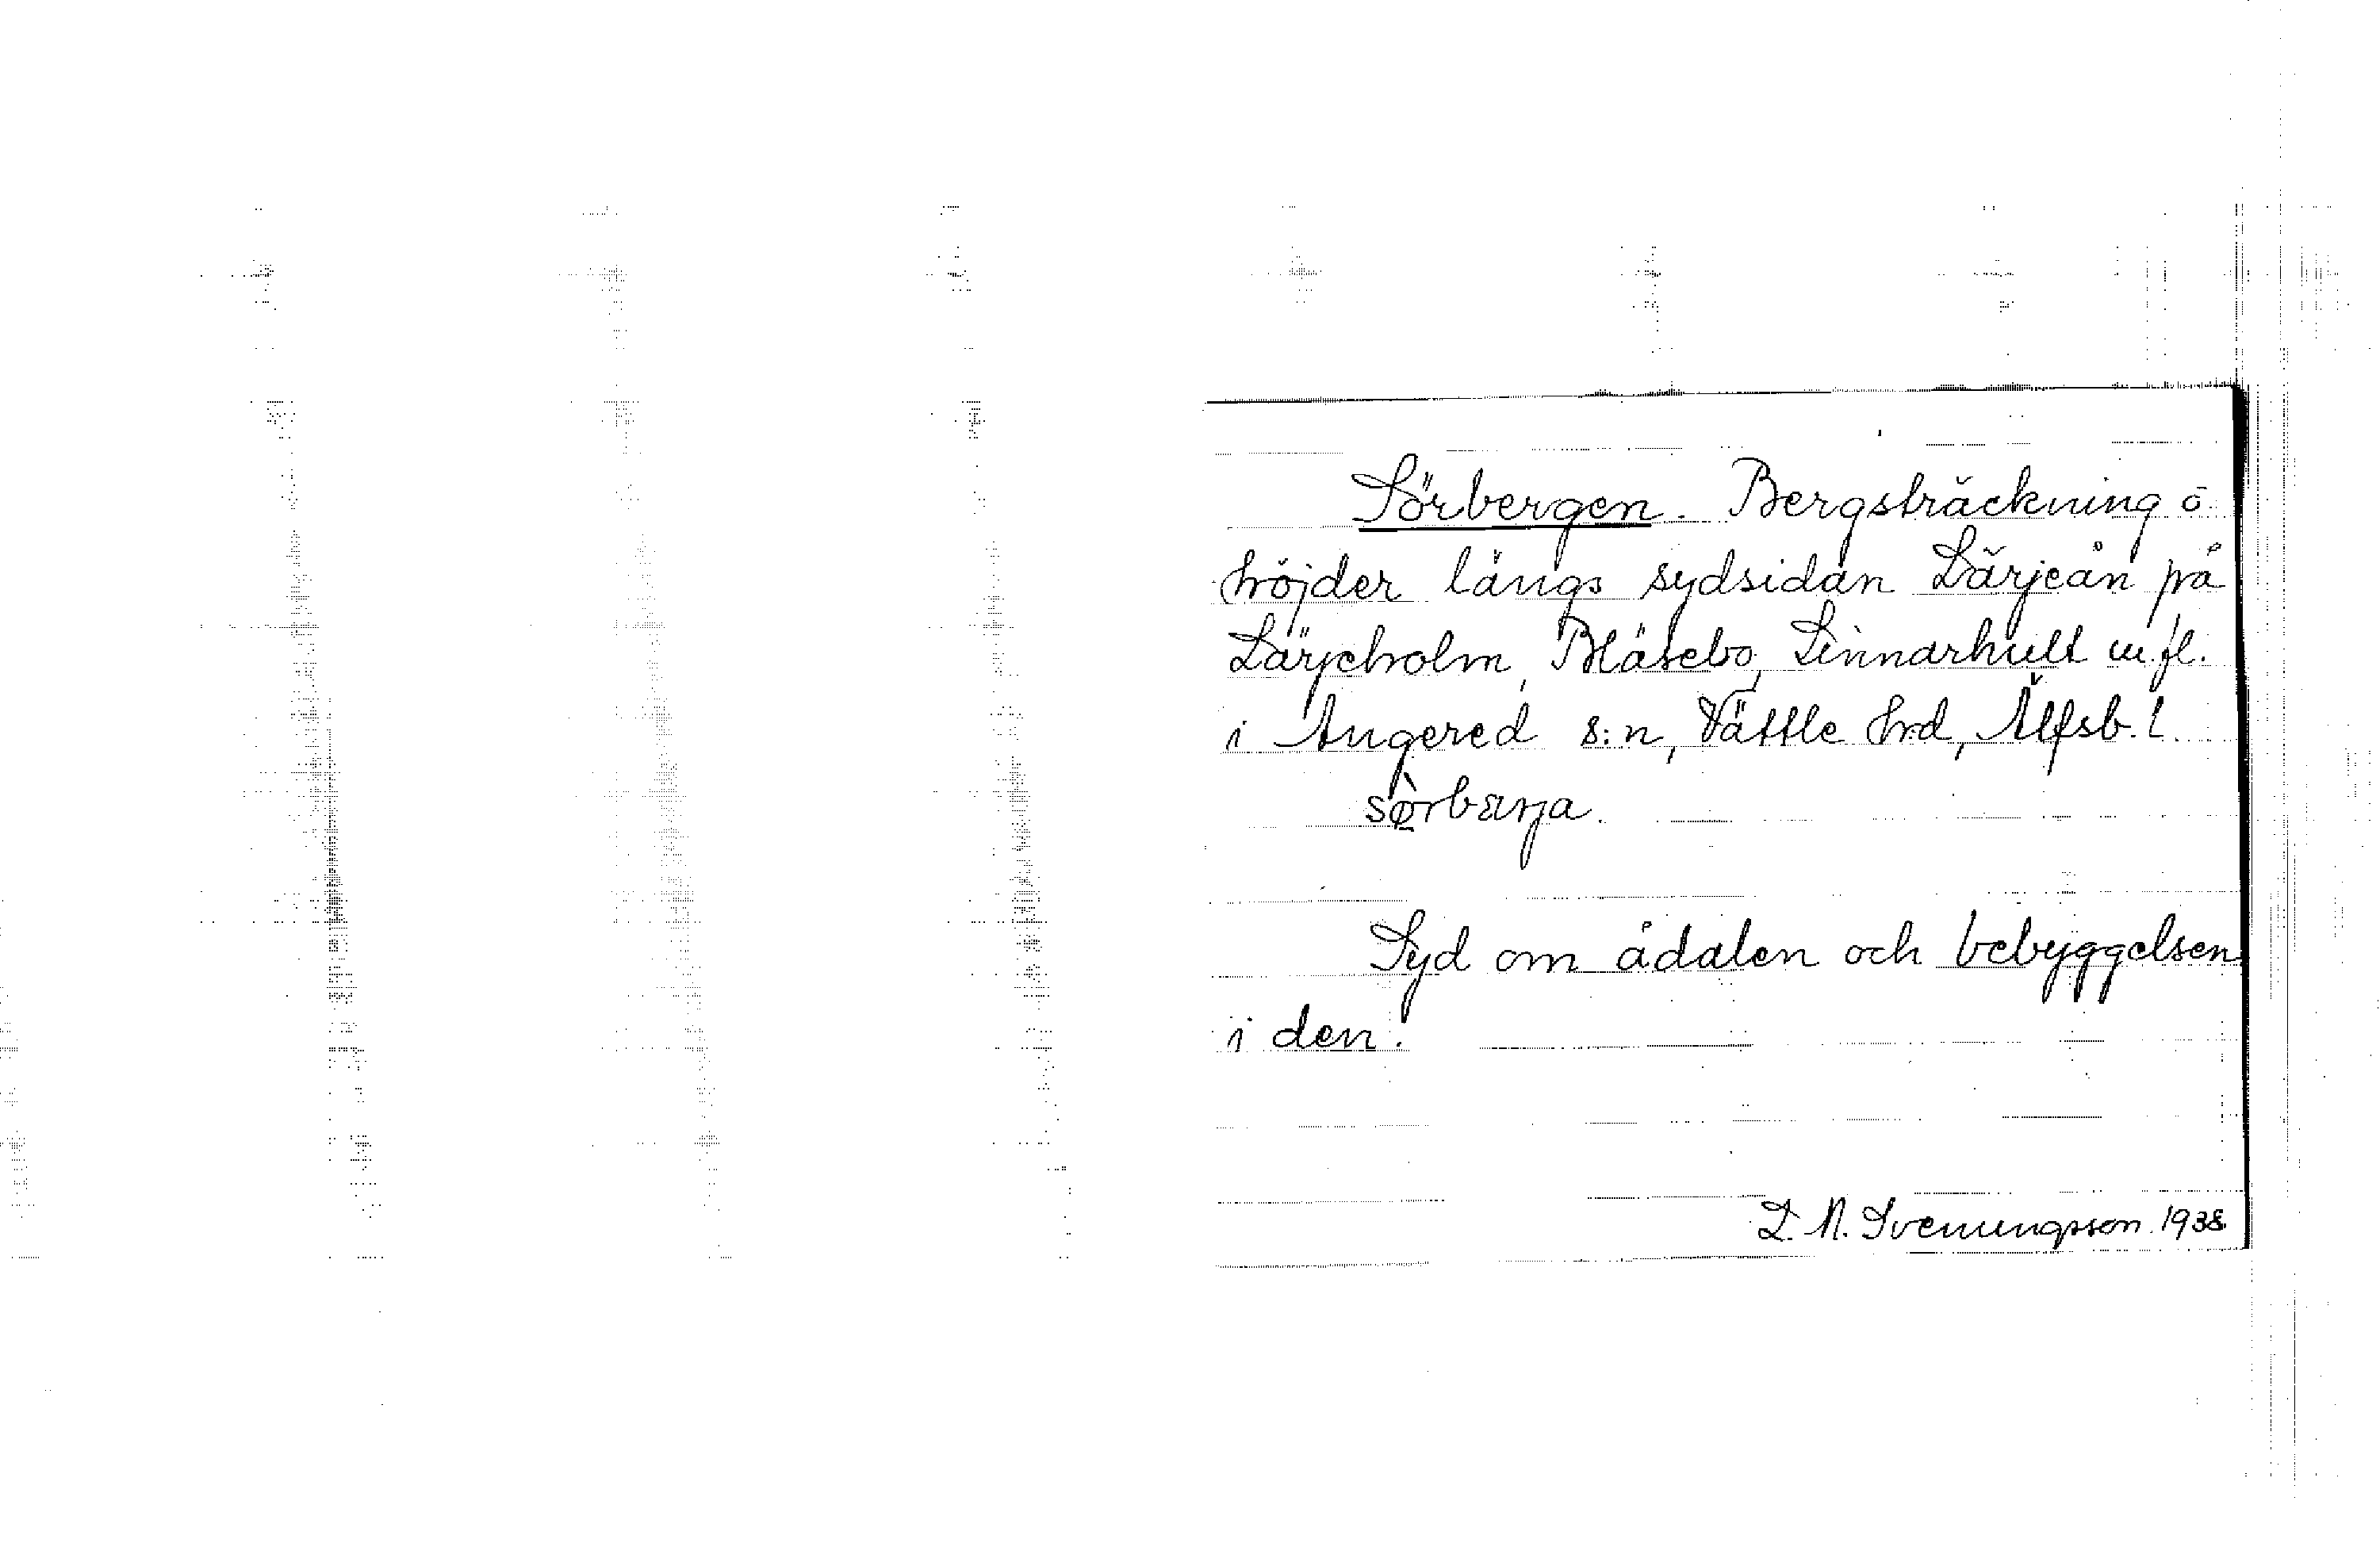 Sörbergen. Bergsträckning ō
höjder längs sydsidan Lärjeån på
Lärjeholm, Bläsebo, Linnarhult m.fl.
i Angered s:n, Vättle hrd, Älfsb. l.
sø̀rbærja.
Syd om ådalen och bebyggelsen
i den.
L. N. Svenungsson. 1938